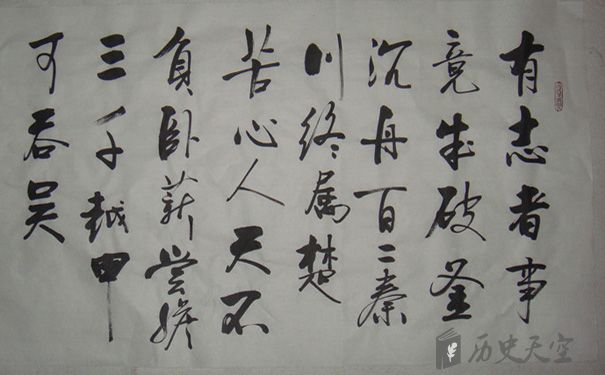 有志者事
竟成破釜
沉舟百二秦
川終属楚
苦心人天不
負卧薪嘗膽
三千越甲
可吞吴
历史天空